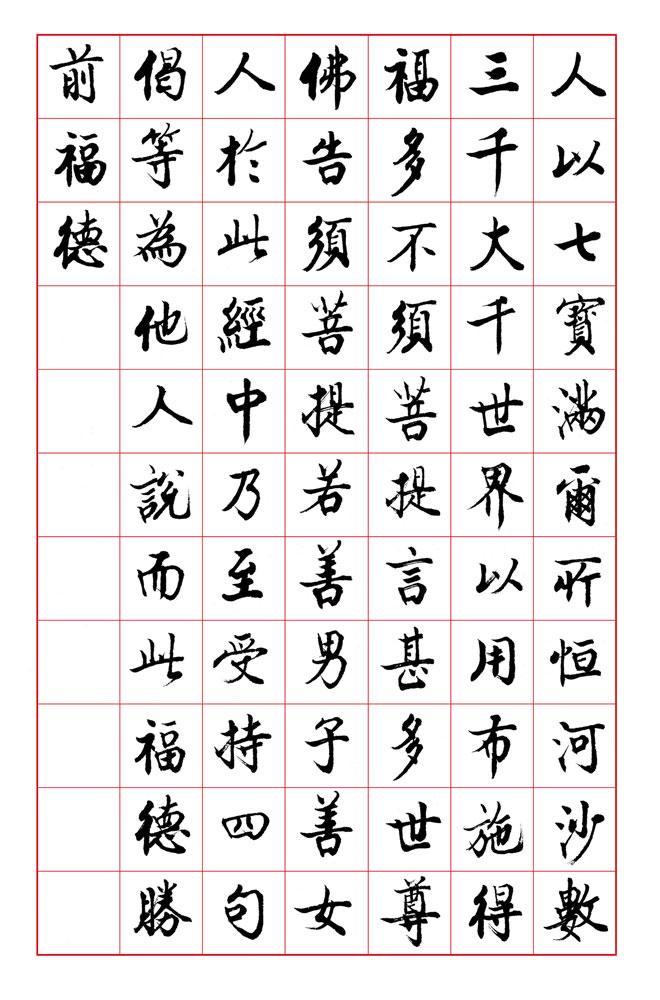 人以七寶滿爾所恒河沙數
三千大千世界以用布施得
福多不須菩提言甚多世尊
佛告須菩提若善男子善女
人於此經中乃至受持四句
偈等為他人說而此福德勝
前福德